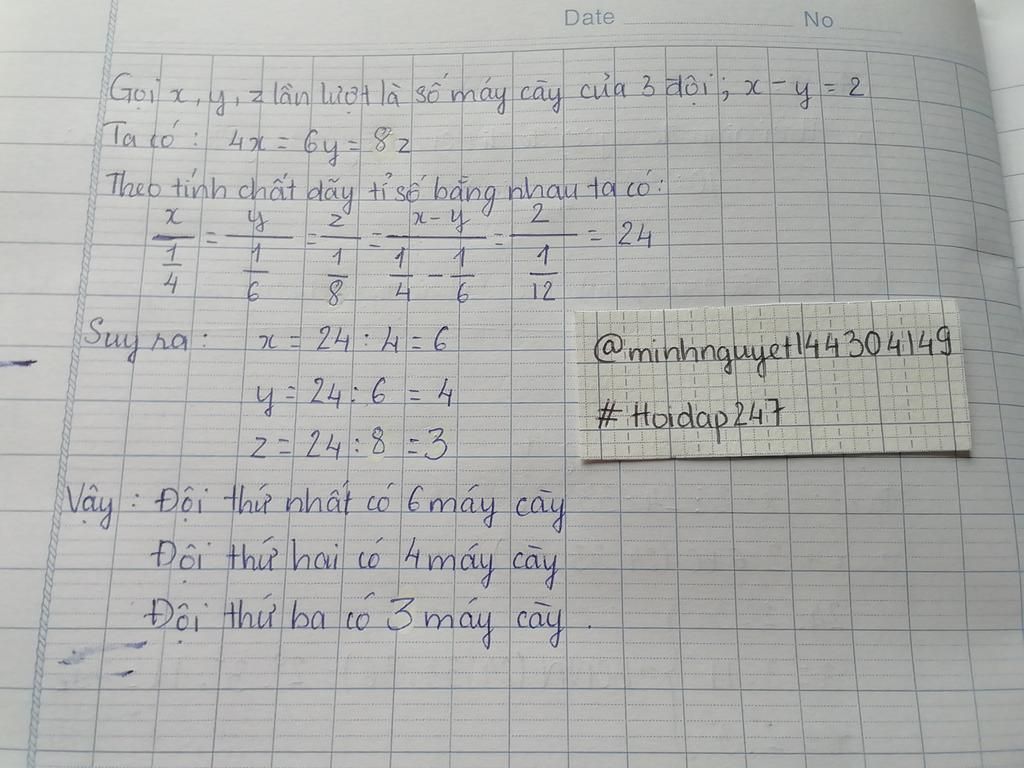 Date No
Gọi x, y, z lần lượt là số máy cày của 3 đội; x - y = 2
Ta có: 4x = 6y = 8z
Theo tính chất dãy tỉ số bằng nhau ta có:
x/(1/4) = y/(1/6) = z/(1/8) = (x - y)/(1/4 - 1/6) = 2/(1/12) = 24
Suy ra: x = 24 : 4 = 6
y = 24 : 6 = 4
z = 24 : 8 = 3
@minhnguyet144304149
# Hoidap247
Vậy: Đội thứ nhất có 6 máy cày
Đội thứ hai có 4 máy cày
Đội thứ ba có 3 máy cày.